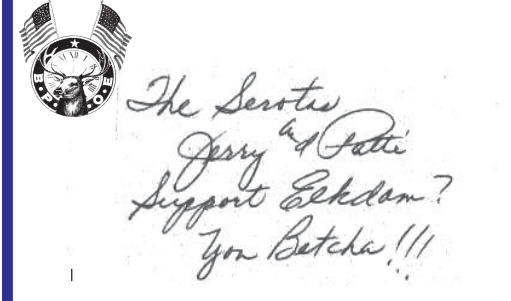 B. P. O. E.
The Serotas
Jerry and Patti
Support Elkdom?
You Betcha!!!